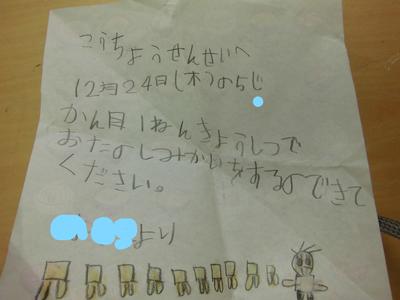 こうちょうせんせいへ
12月24日(木)の5じ
かん目1ねんきょうしつで
おたのしみかいをするのできて
ください。
より